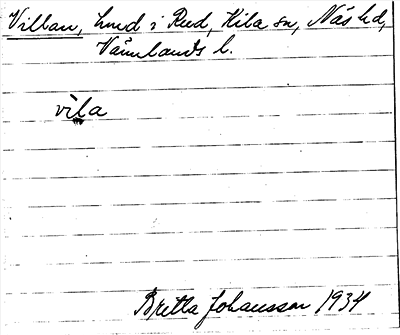 Villan, lund i Rud, Kila sn, Näs hd,
Värmlands l.
vila
Britta Johansson 1934